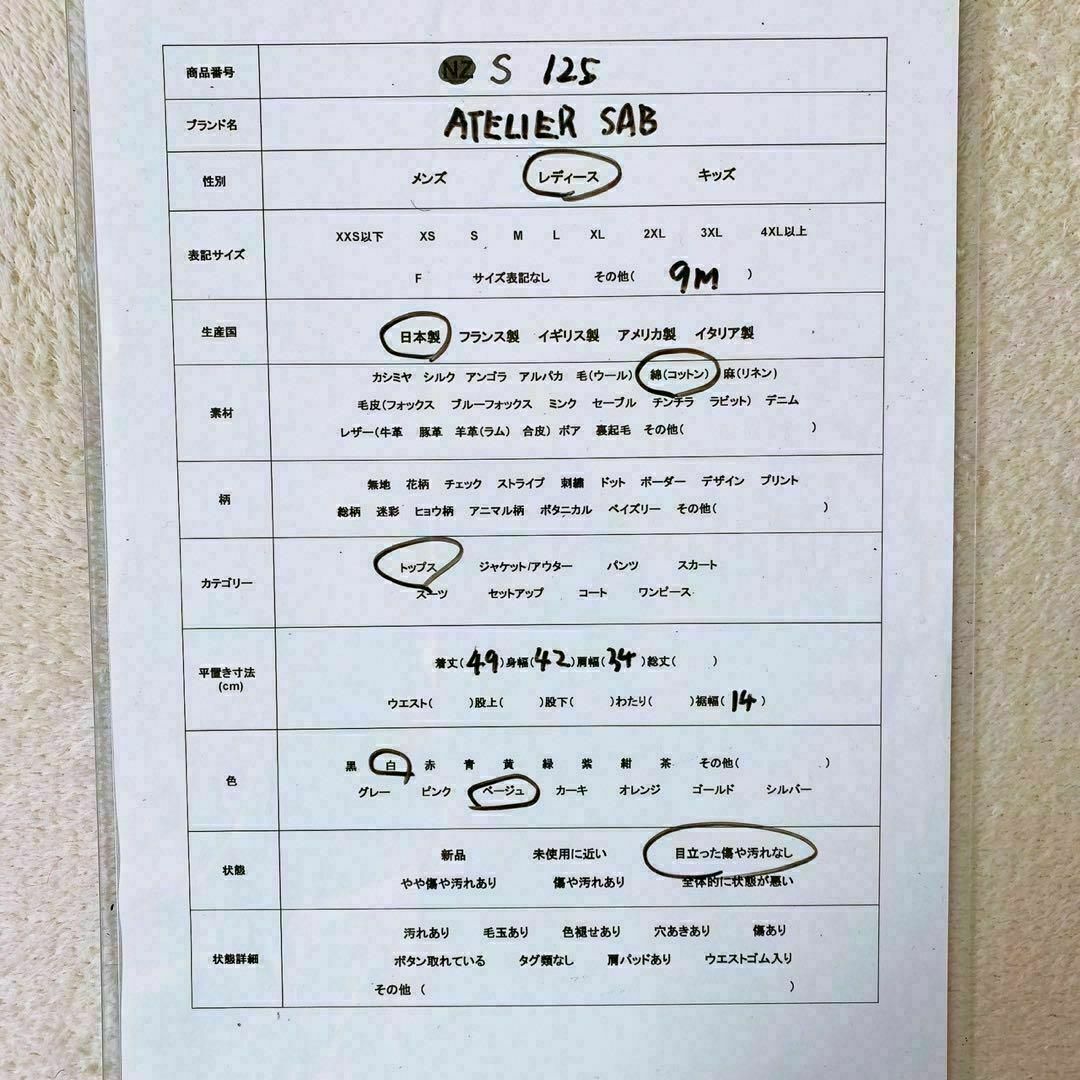 商品番号 NZ S 125
ブランド名 ATELIER SAB
性別 メンズ レディース キッズ
表記サイズ
XXS以下 XS S M L XL 2XL 3XL 4XL以上
F サイズ表記なし その他( 9M )
生産国 日本製 フランス製 イギリス製 アメリカ製 イタリア製
素材
カシミヤ シルク アンゴラ アルパカ 毛(ウール) 綿(コットン) 麻(リネン)
毛皮(フォックス ブルーフォックス ミンク セーブル チンチラ ラビット) デニム
レザー(牛革 豚革 羊革(ラム) 合皮) ボア 裏起毛 その他( )
柄
無地 花柄 チェック ストライプ 刺繍 ドット ボーダー デザイン プリント
総柄 迷彩 ヒョウ柄 アニマル柄 ボタニカル ペイズリー その他( )
カテゴリー
トップス ジャケット/アウター パンツ スカート
スーツ セットアップ コート ワンピース
平置き寸法
(cm)
着丈(49)身幅(42)肩幅(34)総丈( )
ウエスト( )股上( )股下( )わたり( )裾幅(14)
色
黒 白 赤 青 黄 緑 紫 紺 茶 その他( )
グレー ピンク ベージュ カーキ オレンジ ゴールド シルバー
状態
新品 未使用に近い 目立った傷や汚れなし
やや傷や汚れあり 傷や汚れあり 全体的に状態が悪い
状態詳細
汚れあり 毛玉あり 色褪せあり 穴あきあり 傷あり
ボタン取れている タグ類なし 肩パッドあり ウエストゴム入り
その他 ( )